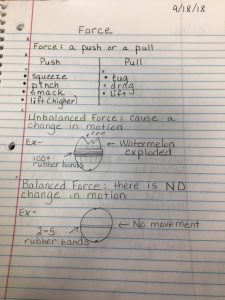 9/18/18
Force
Force: a push or a pull
Push Pull
• squeeze • tug
• pinch • drag
• smack • lift
• lift (higher)
Unbalanced Force: cause a
change in motion
Ex- Watermelon
exploded
100+
rubber bands
Balanced Force: there is NO
change in motion
Ex- No movement
2-5
rubber bands